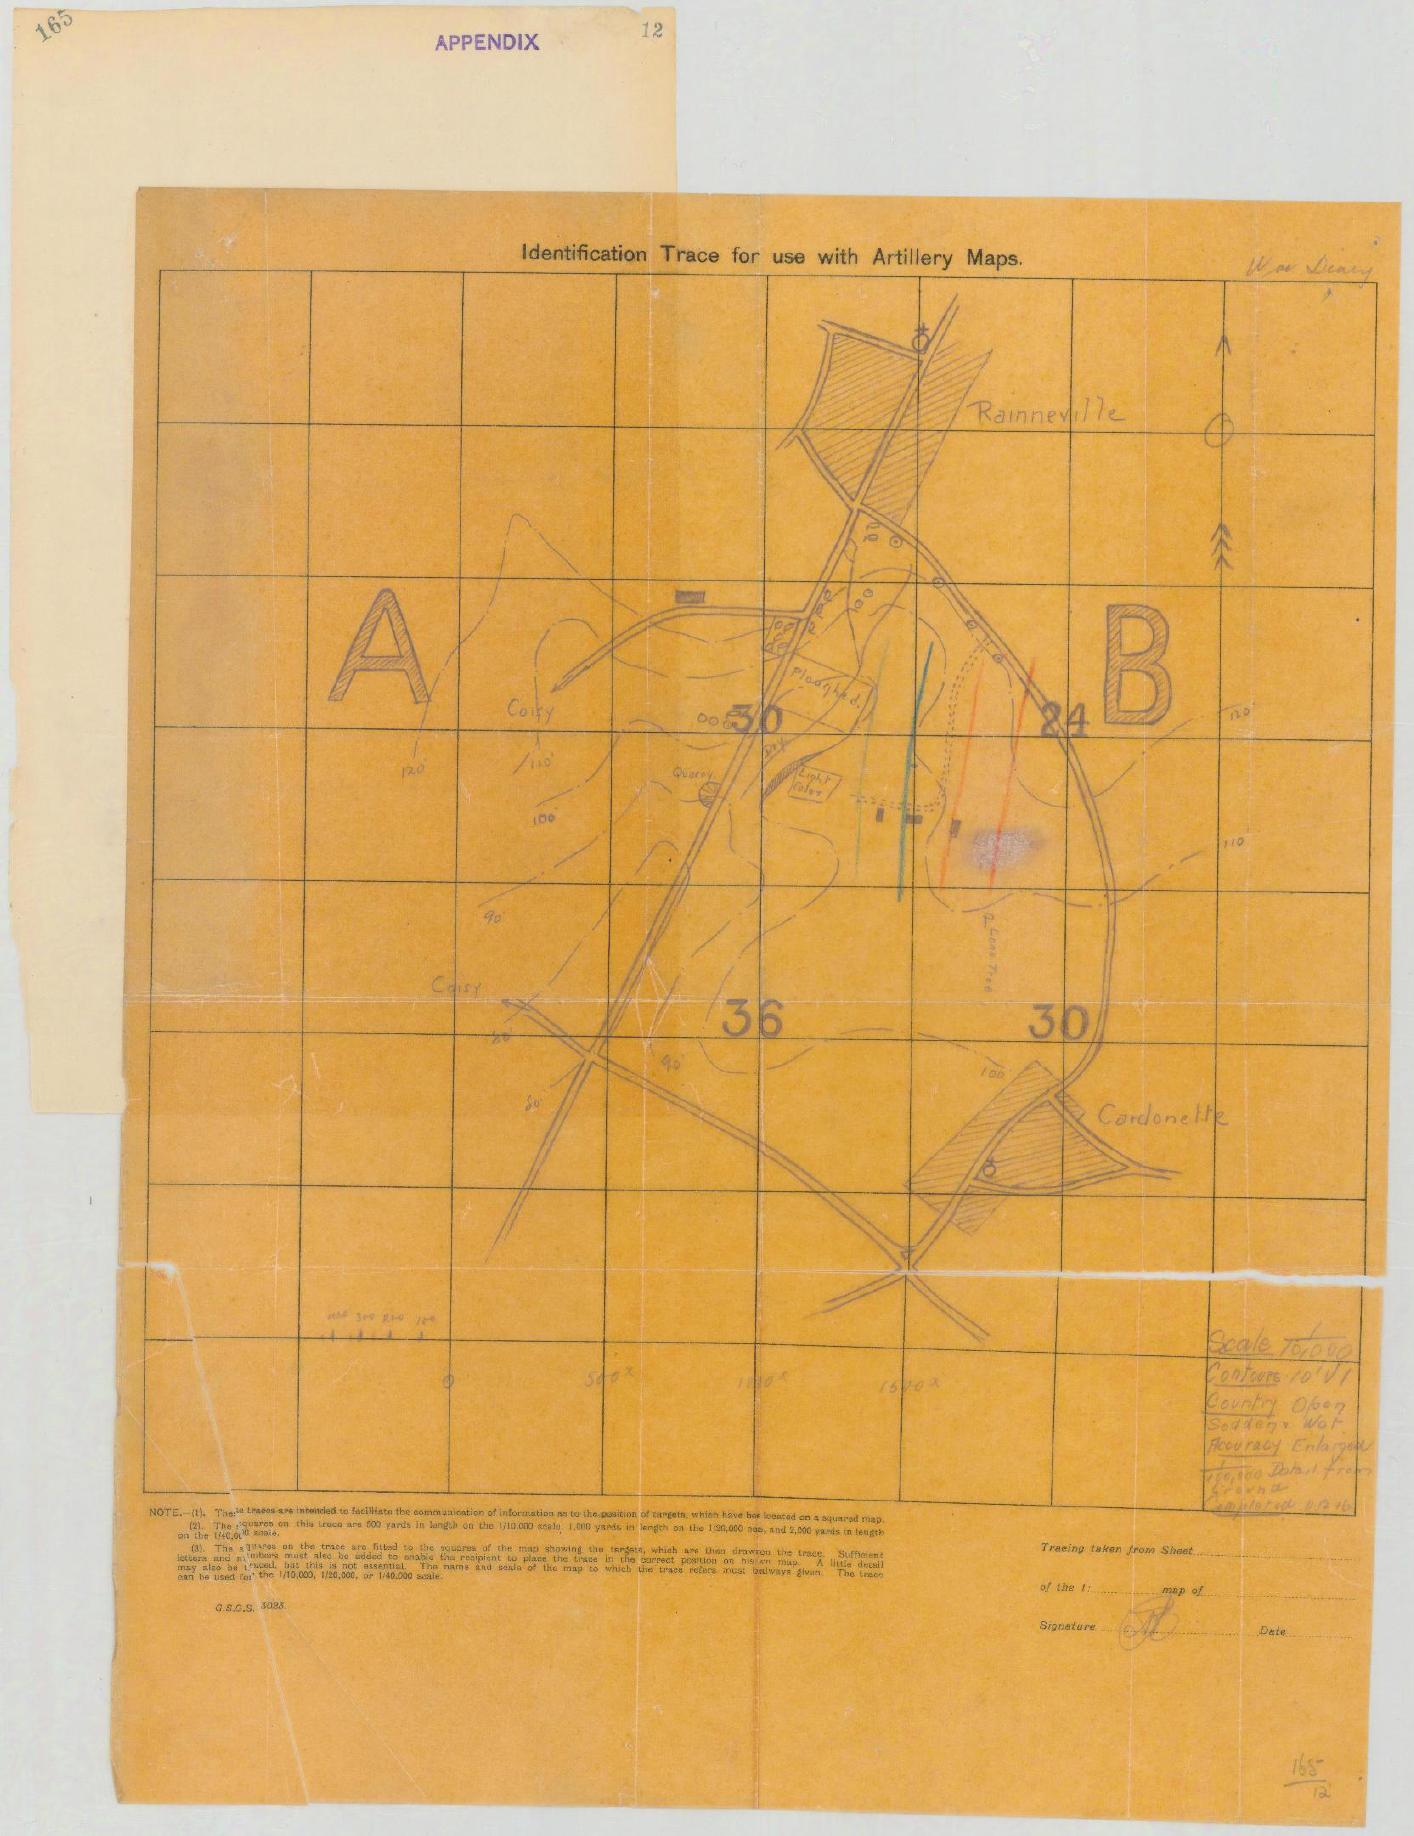 165
APPENDIX
12
Identification Trace for use with Artillery Maps.
War Diary
Rainneville
A
B
Ploughed.
Coisy
30
24
120'
120'
110'
Dry
Quarry
Light
Color
100'
110'
90'
Lone Tree
Coisy
36
30
80'
90'
100'
80'
Cardonette
400 300 200 100
0
500x
1000x
1500x
Scale 1/10,000
Contours 10' VI
Country Open
Sodden & Wet
Accuracy Enlarged
1/100,000 Detail from
Ground
Completed
NOTE.—(1). These traces are intended to facilitate the communication of information as to the position of targets, which have been located on a squared map.
(2). The squares on this trace are 500 yards in length on the 1/10,000 scale, 1,000 yards in length on the 1/20,000 scale, and 2,000 yards in length
on the 1/40,000 scale.
(3). The squares on the trace are fitted to the squares of the map showing the targets, which are then drawn on the trace. Sufficient
letters and numbers must also be added to enable the recipient to place the trace in the correct position on his own map. A little detail
may also be traced, but this is not essential. The name and scale of the map to which the trace refers must be always given. The trace
can be used for the 1/10,000, 1/20,000, or 1/40,000 scale.
G.S.G.S. 3023.
Tracing taken from Sheet
of the 1: map of
Signature Date
165
12